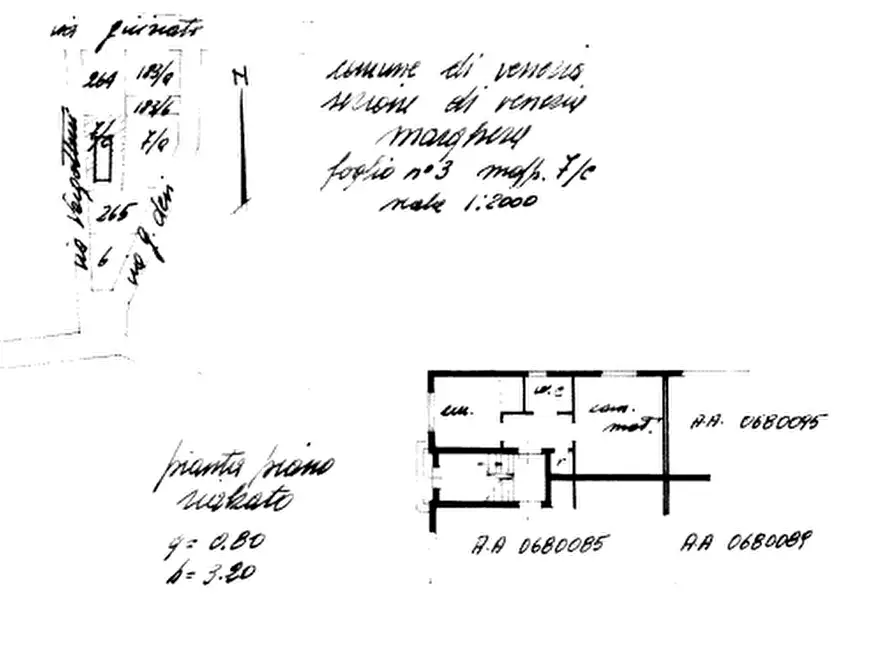 via
264
183/a
183/b
7/a
265
b
via g.
N
comune di venezia
sezione di venezia
marghera
foglio n°3 mapp. 7/c
scala 1:2000
pianta piano
rialzato
q= 0.80
h= 3.20
cu.
w.c
cam.
mat.
r
A.A. 0680095
A.A 0680085
A.A 0680089